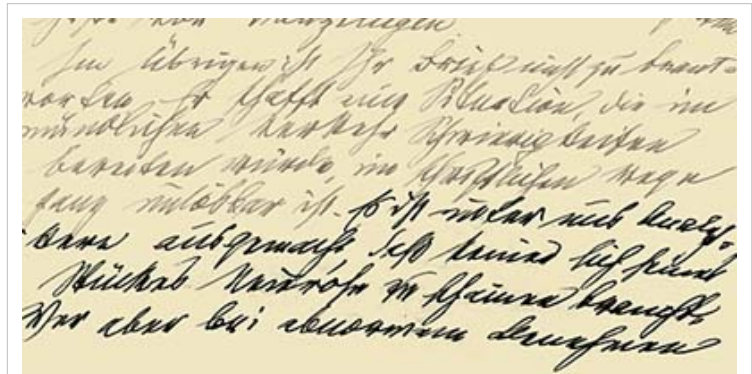 Im übrigen ist Ihr Brief nicht zu beant-
worten. Er schafft eine Situation, die im
mündlichen Verkehr Schwierigkeiten
bereiten würde, im schriftlichen Wege
ganz unlösbar ist. Es ist unter uns Analy-
tikern ausgemacht, daß keiner sich seines
Stückes Neurose zu schämen braucht.
Wer aber bei abnormem Benehmen